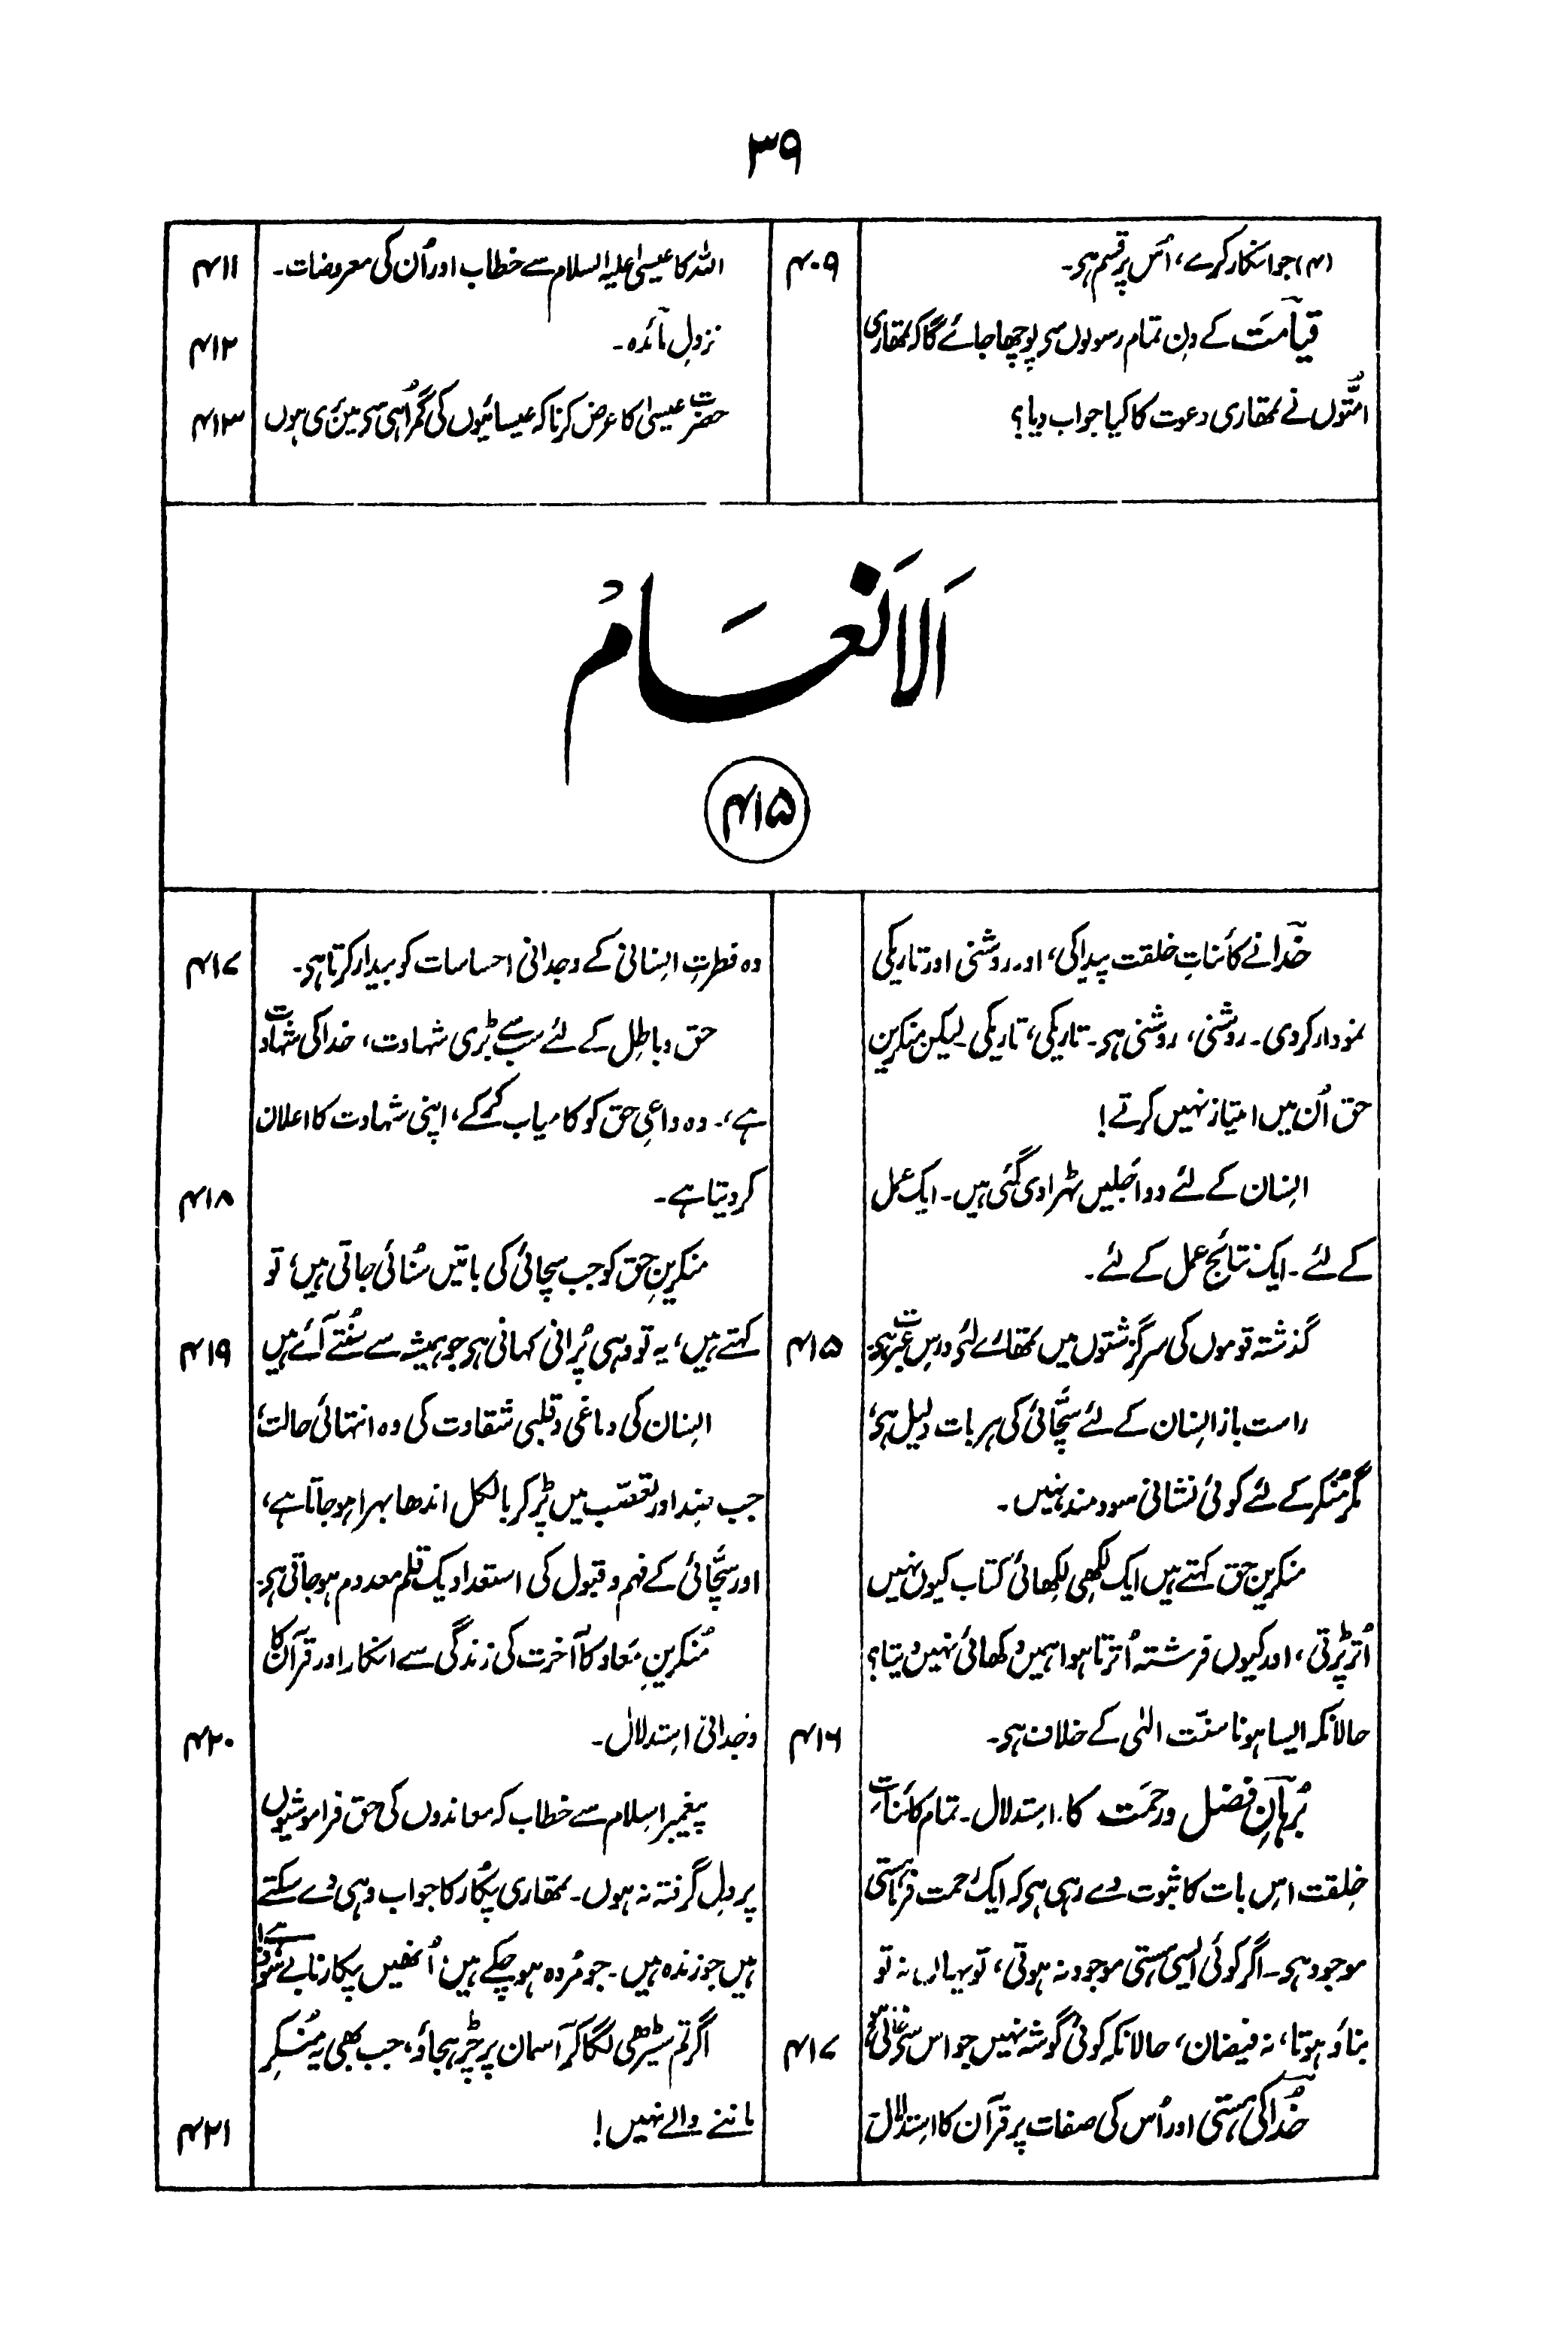 ۳۹
(۴) جو انکار کرے، اُس پر قسم ہی۔ ۴۰۹
قیامت کے دن تمام رسولوں سی پوچھا جائے گا کہ تمھاری
امتوں نے تمھاری دعوت کا کیا جواب دیا؟
اللہ کا عیسیٰ علیہ السلام سے خطاب اور اُن کی معروضات۔ ۴۱۱
نزولِ مائدہ۔ ۴۱۲
حضرت عیسیٰ کا عرض کرنا کہ عیسائیوں کی گمراہی سی میں بری ہوں ۴۱۳
اَلاَنعَام
۴۱۵
خدا نے کائناتِ خلقت پیدا کی، اور روشنی اور تاریکی
نمودار کردی۔ روشنی، روشنی ہی۔ تاریکی، تاریکی۔ لیکن منکرین
حق اُن میں امتیاز نہیں کرتے!
انسان کے لئے دو اَجلیں ٹہرا دی گئی ہیں۔ ایک عمل
کے لئے۔ ایک نتائجِ عمل کے لئے۔
گذشتہ قوموں کی سرگزشتوں میں تمھارے لئے درسِ عبرت ہی۔ ۴۱۵
راست باز انسان کے لئے سچّائی کی ہر بات دلیل ہی،
مگر مُنکر کے لئے کوئی نشانی سودمند نہیں۔
منکرینِ حق کہتے ہیں ایک لکھی لکھائی کتاب کیوں نہیں
اُتر پڑتی، اور کیوں فرشتہ اُترتا ہوا ہمیں دکھائی نہیں دیتا؟
حالانکہ ایسا ہونا سنّت الٰہی کے خلاف ہی۔ ۴۱۶
بُرہانِ فضل و رحمَت کا استدلال۔ تمام کائناتِ
خلقت اِس بات کا ثبوت دے رہی ہی کہ ایک رحمت فرما ہستی
موجود ہی۔ اگر کوئی ایسی ہستی موجود نہ ہوتی، تو یہاں نہ تو
بناؤ ہوتا، نہ فیضان، حالانکہ کوئی گوشہ نہیں جو اس سی خالی ہو ۴۱۷
خُدا کی ہستی اور اُس کی صفات پر قرآن کا استدلال۔
وہ فطرتِ انسانی کے وجدانی احساسات کو بیدار کرتا ہی۔ ۴۱۷
حق و باطِل کے لئے سب سے بڑی شہادت، خدا کی شہادت
ہے،۔ وہ داعیِ حق کو کامیاب کرکے، اپنی شہادت کا اعلان
کردیتا ہے۔ ۴۱۸
منکرینِ حق کو جب سچائی کی باتیں سُنائی جاتی ہیں، تو
کہتے ہیں، یہ تو وہی پُرانی کہانی ہی جو ہمیشہ سے سُنتے آئے ہیں ۴۱۹
انسان کی دماغی و قلبی شقاوت کی وہ انتہائی حالت،
جب ضِد اور تعصّب میں پڑ کر بالکل اندھا بہرا ہوجاتا ہے،
اور سچّائی کے فہم و قبول کی استعداد یک قلم معدوم ہوجاتی ہی۔
مُنکرینِ مَعاد کا آخرت کی زندگی سے انکار اور قرآن کا
وجدانی استدلال۔ ۴۲۰
پیغمبرِ اسلام سے خطاب کہ معاندوں کی حق فراموشیوں
پر دل گرفتہ نہ ہوں۔ تمھاری پکار کا جواب وہی دے سکتے
ہیں جو زندہ ہیں۔ جو مُردہ ہوچکے ہیں، اُنھیں پکارنا بے سُود ہے!
اگر تم سیڑھی لگا کر آسمان پر چڑھ جاؤ، جب بھی یہ مُنکِر
ماننے والے نہیں! ۴۲۱